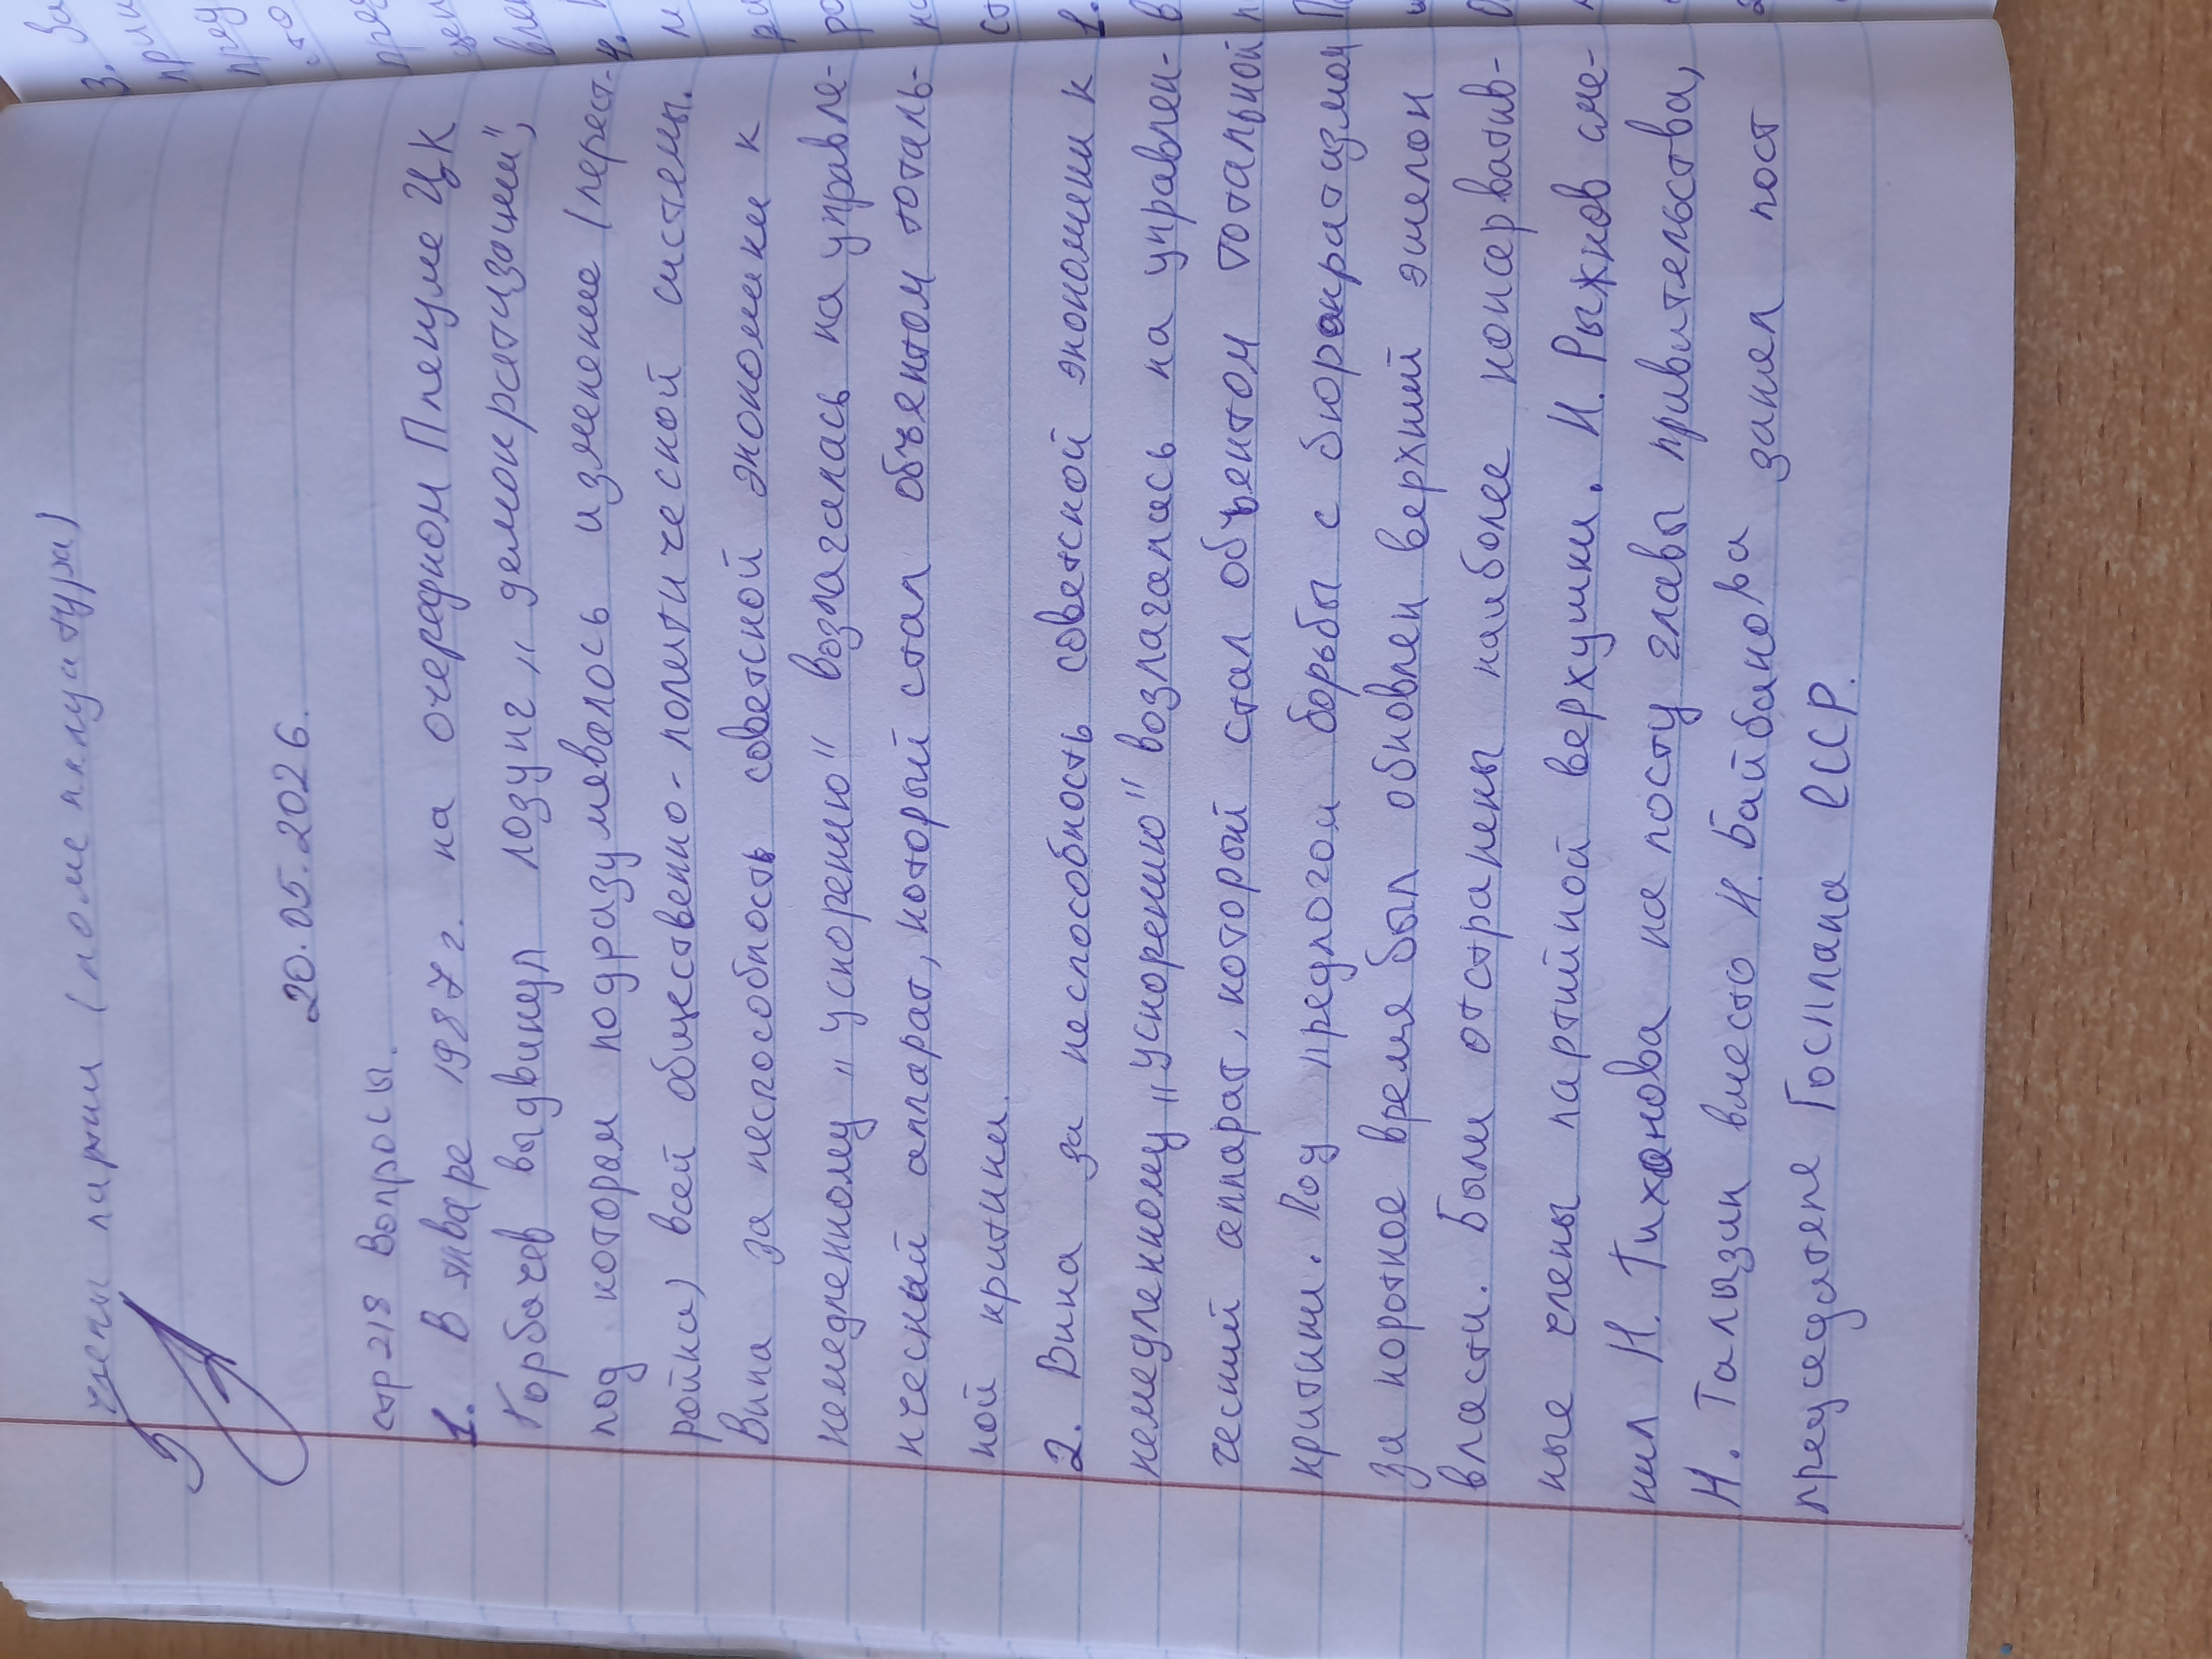 члены партии (номенклуатура)
20.05.2026.
стр 218 Вопросы.
1. В январе 1987г. на очередном Пленуме ЦК
Горбачев выдвинул лозунг „демократизации",
под которам подразумевалось изменение (перест-
ройка) всей общественно-политической системы.
Вина за неспособность советской экономики к
немедленному „ускорению" возлагалась на управле-
нческий аппарат, который стал объектом тоталь-
ной критики.
2. Вина за неспособность советской экономики к
немедленному „ускорению" возлагалась на управлен-
ческий аппарат, который стал объектом тотальной
критики. Под предлогом борьбы с бюрократизмом
за короткое время был обновлен верхний эшелон
власти. Были отстранены наиболее консерватив-
ные члены партийной верхушки. Н. Рыжков сме-
нил Н. Тихонова на посту главы привительства,
Н. Талызин вместо Н. Байбакова занел пост
председателе Госплана СССР.
3.
4.
1.